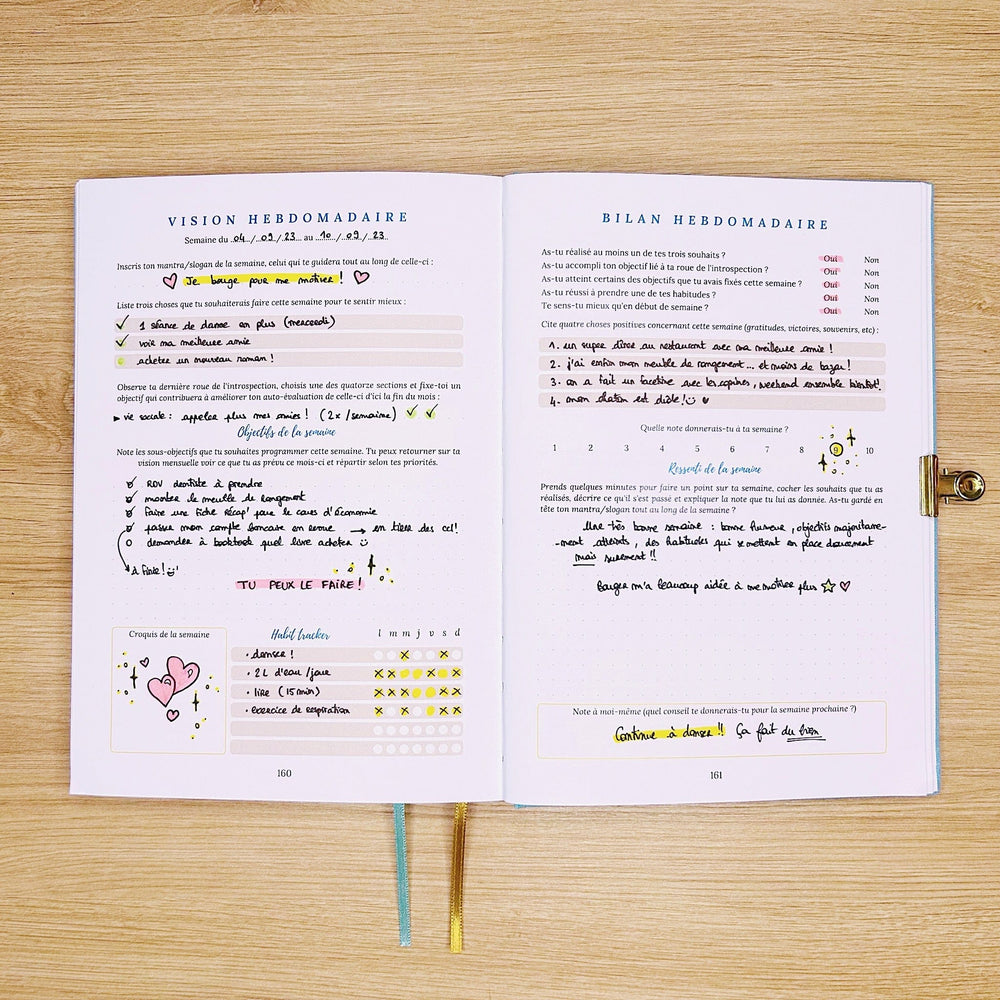 VISION HEBDOMADAIRE
Semaine du 04/09/23 au 10/09/23
Inscris ton mantra/slogan de la semaine, celui qui te guidera tout au long de celle-ci :
Je bouge pour me motiver !
Liste trois choses que tu souhaiterais faire cette semaine pour te sentir mieux :
1 séance de danse en plus (mercredi)
voir ma meilleure amie
acheter un nouveau roman !
Observe ta dernière roue de l'introspection, choisis une des quatorze sections et fixe-toi un
objectif qui contribuera à améliorer ton auto-évaluation de celle-ci d'ici la fin du mois :
vie sociale : appeler plus mes amies ! (2x/semaine)
Objectifs de la semaine
Note les sous-objectifs que tu souhaites programmer cette semaine. Tu peux retourner sur ta
vision mensuelle voir ce que tu as prévu ce mois-ci et répartir selon tes priorités.
RDV dentiste à prendre
monter le meuble de rangement
Faire une fiche récap' pour le cours d'économie
passer mon compte bancaire en revue → en tirer des ccl!
demander à booktook quel livre acheter
à finir !
TU PEUX LE FAIRE !
Croquis de la semaine
Habit tracker
l m m j v s d
• danser !
• 2L d'eau /jour
• lire (15min)
• exercice de respiration
160
BILAN HEBDOMADAIRE
As-tu réalisé au moins un de tes trois souhaits ? Oui Non
As-tu accompli ton objectif lié à ta roue de l'introspection ? Oui Non
As-tu atteint certains des objectifs que tu avais fixés cette semaine ? Oui Non
As-tu réussi à prendre une de tes habitudes ? Oui Non
Te sens-tu mieux qu'en début de semaine ? Oui Non
Cite quatre choses positives concernant cette semaine (gratitudes, victoires, souvenirs, etc) :
1. un super dîner au restaurant avec ma meilleure amie !
2. j'ai enfin mon meuble de rangement... et moins de bazar!
3. on a fait un facetime avec les copines, weekend ensemble bientôt!
4. mon chaton est drôle!
Quelle note donnerais-tu à ta semaine ?
1 2 3 4 5 6 7 8 9 10
Ressenti de la semaine
Prends quelques minutes pour faire un point sur ta semaine, cocher les souhaits que tu as
réalisés, décrire ce qu'il s'est passé et expliquer la note que tu lui as donnée. As-tu gardé en
tête ton mantra/slogan tout au long de la semaine ?
Une très bonne semaine : bonne humeur, objectifs majoritaire-
-ment atteints, des habitudes qui se mettent en place doucement
mais surement !!
Bouger m'a beaucoup aidée à me motiver plus
Note à moi-même (quel conseil te donnerais-tu pour la semaine prochaine ?)
Continue à danser !! Ça fait du bien
161